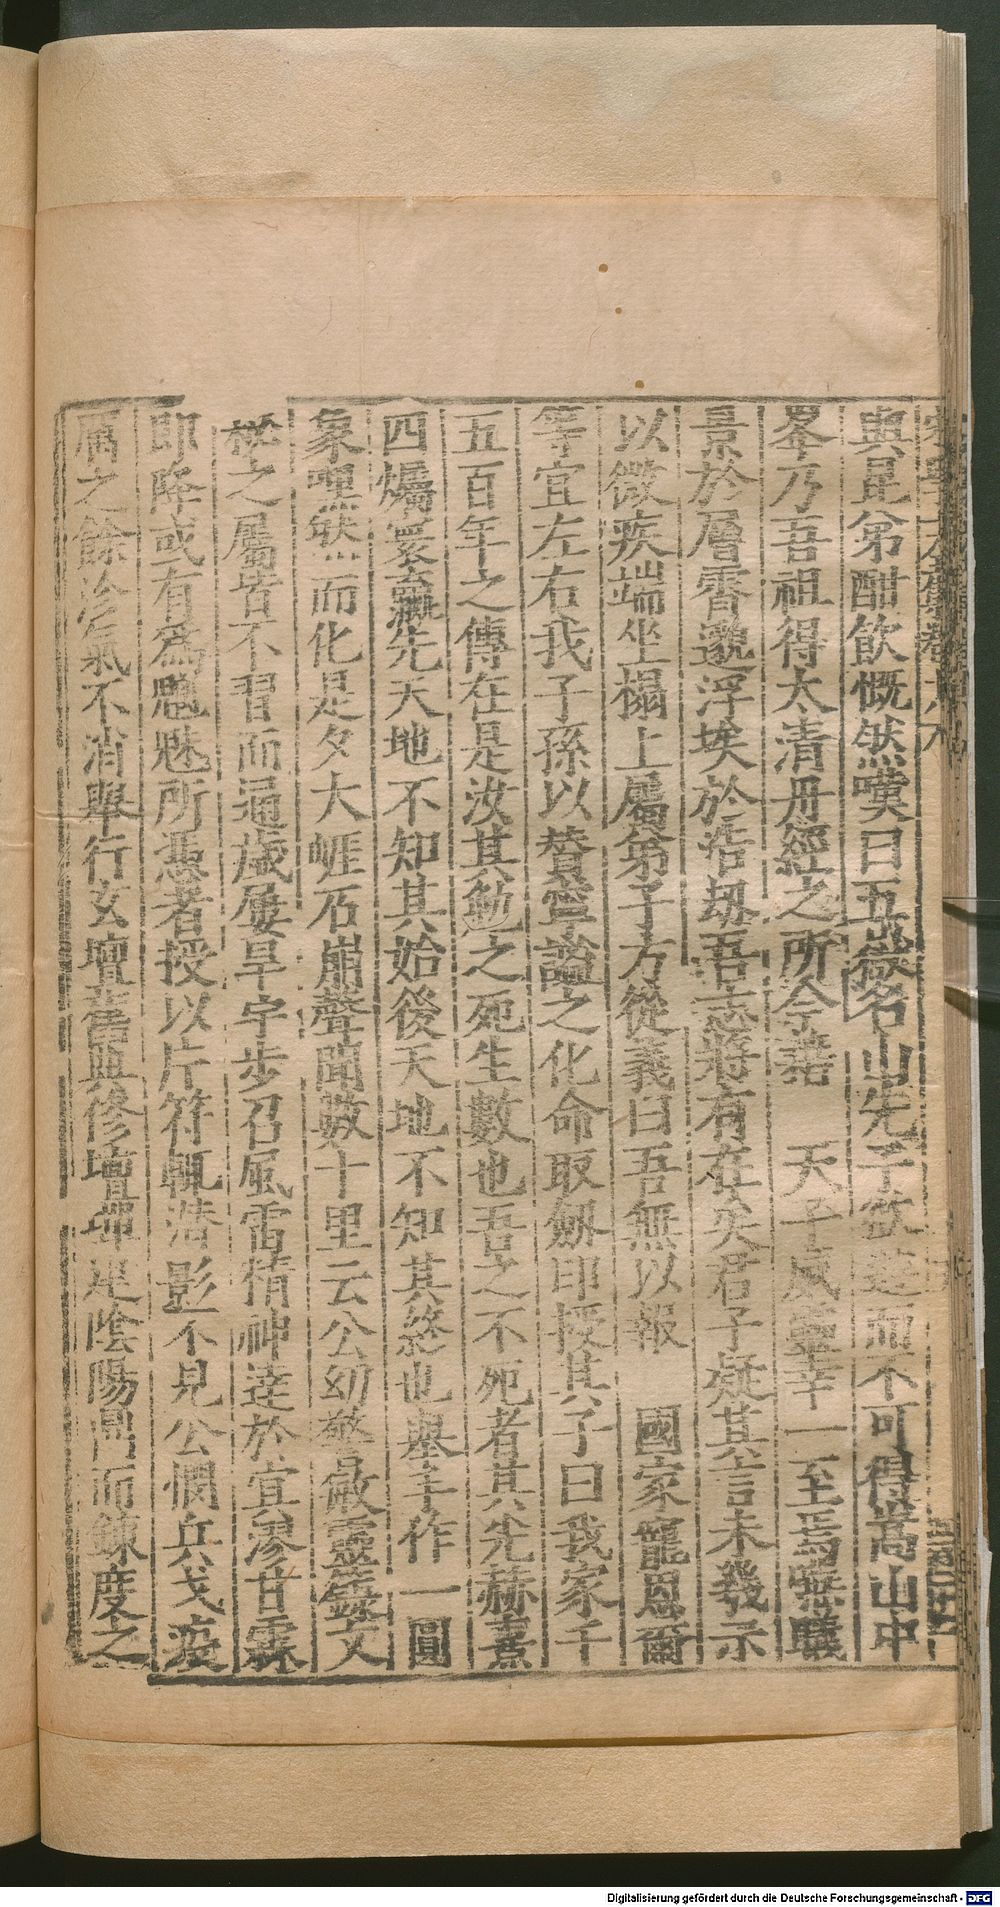 宋學士文集卷
與昆弟酣飲慨然嘆曰五嶽名山先子欲遊而不可得嵩山中
峯乃吾祖得太清丹經之所今藉 天子威靈幸一至焉睇曦
景於層霄邈浮埃於浩劫吾志將有在矣君子疑其言未幾示
以微疾端坐榻上屬弟子方從義曰吾無以報 國家寵恩爾
等宜左右我子孫以贊寧謐之化命取劔印授其子曰我家千
五百年之傳在是汝其勉之死生數也吾之不死者其先赫熹
四爥寰瀛先天地不知其始後天地不知其終也舉手作一圓
象嘿然而化是夕大崖石崩聲聞數十里云公幼警敏靈籙文
檄之屬皆不習而通歲屢旱宇步召風雷精神達於冥漻甘霖
即降或有為魑魅所憑者授以片符輒潛影不見公憫兵戈疫
癘之餘沴氣不消舉行玄壇舊典修壇墠定陰陽局而鍊度之
Digitalisierung gefördert durch die Deutsche Forschungsgemeinschaft - DFG